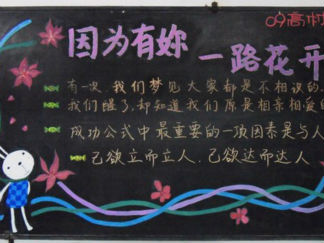 09高村
因为有妳 一路花开
有一次,我们梦见大家都是不相识的.
我们醒了,却知道我们原是相亲相爱的
成功公式中最重要的一项因素是与人
己欲立而立人,己欲达而达人